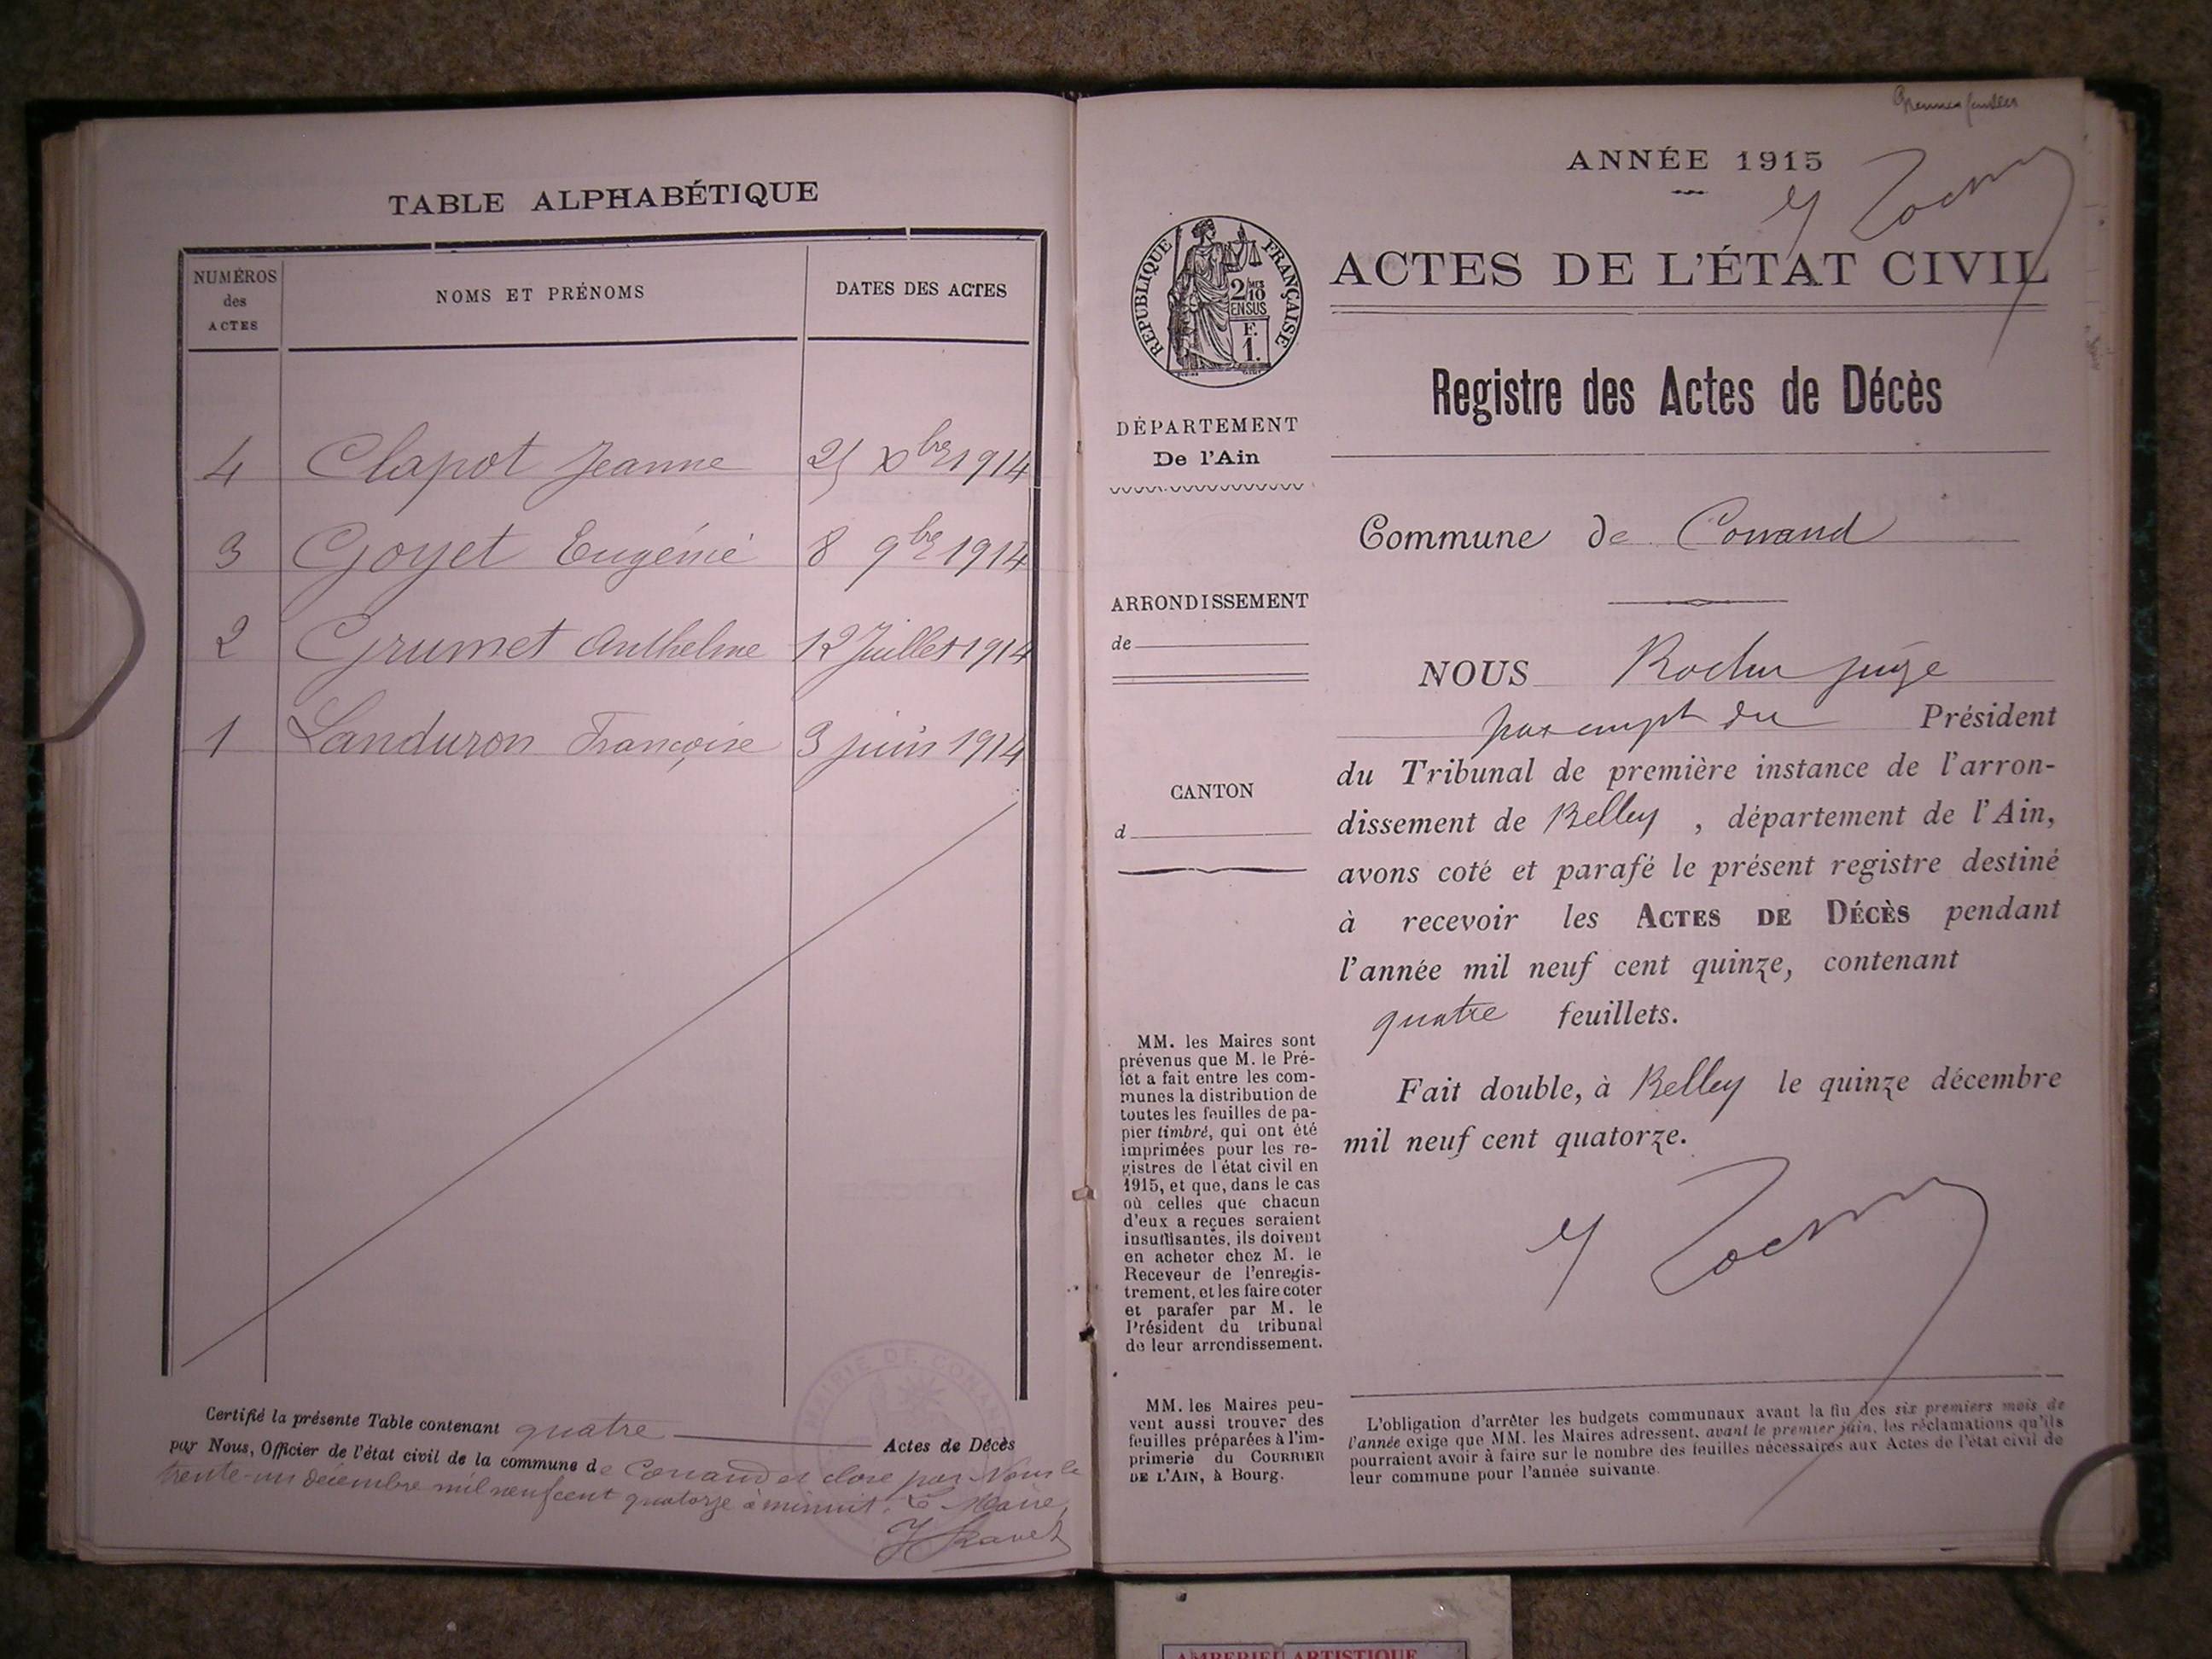 TABLE ALPHABÉTIQUE
NUMÉROS
des
ACTES
NOMS ET PRÉNOMS
DATES DES ACTES
4 Clapot Jeanne 25 Xbre 1914
3 Goyet Eugénie 8 9bre 1914
2 Grumet Anthelme 12 Juillet 1914
1 Landuron Françoise 3 juin 1914
Certifié la présente Table contenant quatre Actes de Décès
par Nous, Officier de l'état civil de la commune de Conand et close par Nous le
trente-un décembre mil neuf cent quatorze à minuit. Le Maire,
J Ravet
MAIRIE DE CONAND
ANNÉE 1915
ACTES DE L'ÉTAT CIVIL
RÉPUBLIQUE FRANÇAISE
2/10MES
EN SUS
F.
1.
Registre des Actes de Décès
DÉPARTEMENT
De l'Ain
Commune de Conand
ARRONDISSEMENT
de
CANTON
d
NOUS Rocher juge
par empt du Président
du Tribunal de première instance de l'arron-
dissement de Belley, département de l'Ain,
avons coté et parafé le présent registre destiné
à recevoir les ACTES DE DÉCÈS pendant
l'année mil neuf cent quinze, contenant
quatre feuillets.
Fait double, à Belley le quinze décembre
mil neuf cent quatorze.
MM. les Maires sont
prévenus que M. le Pré-
fet a fait entre les com-
munes la distribution de
toutes les feuilles de pa-
pier timbré, qui ont été
imprimées pour les re-
gistres de l'état civil en
1915, et que, dans le cas
où celles que chacun
d'eux a reçues seraient
insuffisantes, ils doivent
en acheter chez M. le
Receveur de l'enregis-
trement, et les faire coter
et parafer par M. le
Président du tribunal
de leur arrondissement.
MM. les Maires peu-
vent aussi trouver des
feuilles préparées à l'im-
primerie du COURRIER
DE L'AIN, à Bourg.
L'obligation d'arrêter les budgets communaux avant la fin des six premiers mois de
l'année exige que MM. les Maires adressent, avant le premier juin, les réclamations qu'ils
pourraient avoir à faire sur le nombre des feuilles nécessaires aux Actes de l'état civil de
leur commune pour l'année suivante.
AMBERIEU ARTISTIQUE